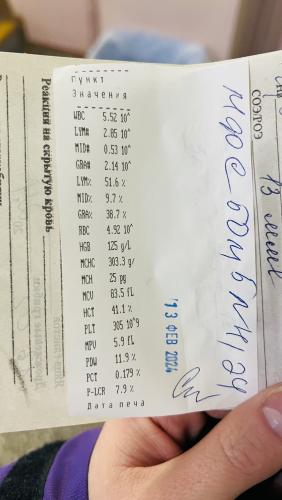 Пункт
Значения
WBC 5.52 10^
LYM# 2.85 10^
MID# 0.53 10^
GRA# 2.14 10^
LYM% 51.6 %
MID% 9.7 %
GRA% 38.7 %
RBC 4.92 10^
HGB 125 g/L
MCHC 303.3 g/
MCH 25 pg
MCV 83.5 fL
HCT 41.1 %
PLT 305 10^9
MPV 5.9 fL
PDW 11.9 %
PCT 0.179 %
P-LCR 7.9 %
Дата печа
13 ФЕВ 2024
СОЭ/РОЭ
13 мм/ч
Реакция на скрытую кровь